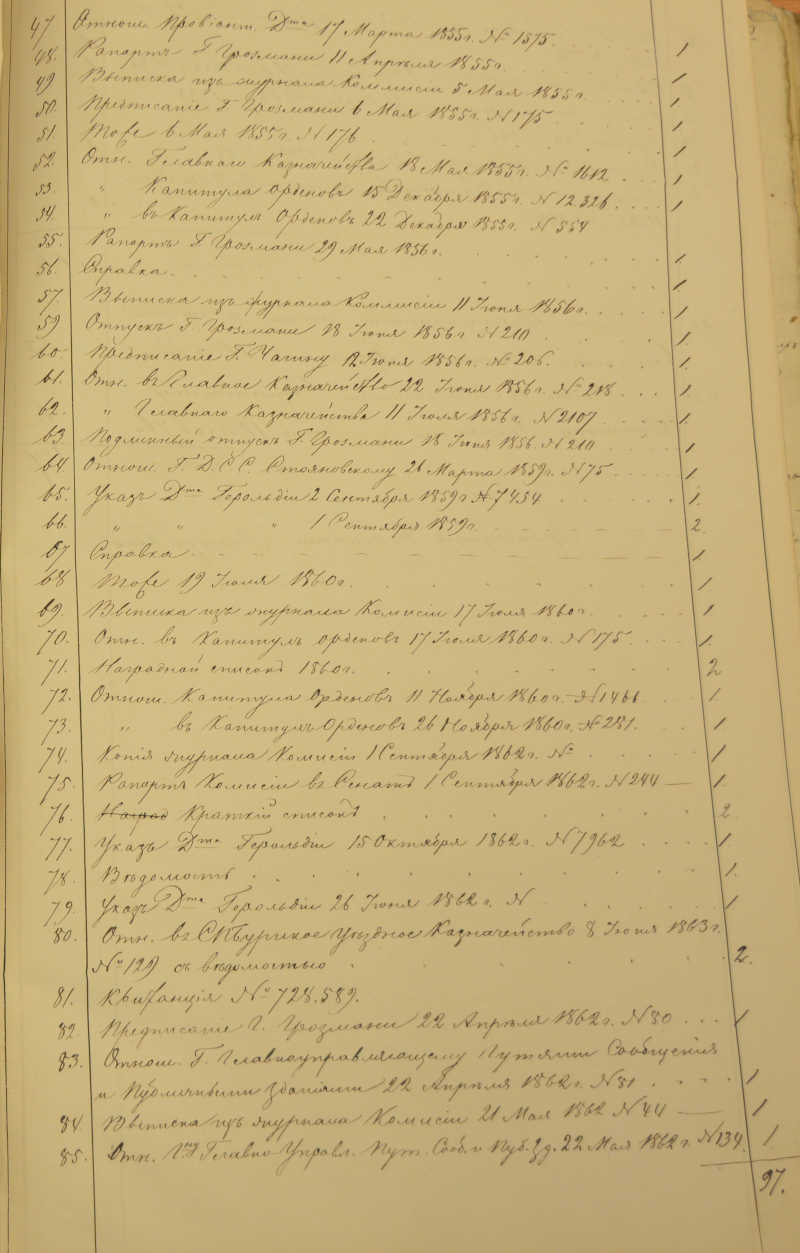 47 Отнош. Провіант. Д-та 17 Марта 1855 г. № 1575.
48. Рапортъ Г. Грозмани 11 Апрѣля 1855 г. 1
49 Выписка изъ журнала Коммисіи 5 Мая 1855 г. 1
50. Предписаніе Г. Грозмани 6 Мая 1855 г. N 175 1
51. Тоже 6 Мая 1855 г. N 176 1
52. Отн. Главнаго Казначейства 18 Мая 1855 г. № 1612 . 1
53. " Капитула Орденовъ 15 Декабря 1855 г. N 12326 . 1
54. " въ Капитулъ Орденовъ 22 Декабря 1855 г. N 554 1
55. Рапортъ Г. Грозмани 29 Мая 1856 г.
56. Справка. 1
57. Выписка изъ журнала Коммисіи 11 Іюня 1856 г. 1
59 Отпускъ Г. Грозмани 18 Іюня 1856 г N 210 1
60 Предписаніе Г. Чагину 12 Іюня 1856 г. № 206. 1
61. Отн. въ Главное Казначейство 22 Іюня 1856 г. № 218 1
62. " Главнаго Казначейства 11 Іюля 1856 г. N 2107 1
63. Подлинный отпускъ Г. Грозмани 18 Іюня 1856 N 210 1
64 Отнош. Г. Д. С. С. Стояновскому 21 Марта 1859 г. N 75 1
65. Указъ Д-та Герольдіи 2 Сентября 1859 г № 7454. 1.
66. " " " 1 Сентября 1859 г. 2
67 Справка 1
68 Тоже 19 Іюля 1860 г. 1
69. Выписка изъ журнала Комисіи 17 Іюля 1860 г. 1
70. Отн. въ Капитулъ орденовъ 17 Іюля 1860 г. N 175. 1.
71. Наградной списокъ 1860 г. 2
72. Отнош. Капитула Орденовъ 11 Ноября 1860 г. N 1466 1.
73. " въ Капитулъ Орденовъ 26 Ноября 1860 г. № 281. 1
74. Копія журнала Комисіи 1 Сентября 1862 г. № 1
75. Рапортъ Комисіи въ Сенатъ 1 Сентября 1862 г. N 244 1.
76. Краткій списокъ 2
77. Указъ Д-та Герольдіи 15 Октября 1862 г. N 7962 1
78. Вѣдомость 1.
79. Указъ Д-та Герольдіи 26 Іюня 1862 г. N 1
80. Отн. въ СПбургское Уѣздное Казначейство 8 Іюня 1863 г.
№ 129 съ вѣдомостью 2.
81. Квитанція № 728.589.
82. Предписаніе Г. Грозмани 22 Апрѣля 1862 г. N 80 1
83. Отнош. Г. Главноуправляющему Путями Сообщенія
и Публичными зданіями 22 Апрѣля 1862 г. N 81 1
84 Выписка изъ журнала Комисіи 21 Мая 1862 N 44 1
85. Отн. Главно Управл. Пут. Сооб. и Пуб. Зд. 22 Мая 1862 г. N 134. 1
97.